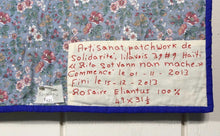 Artisanat patchwork de
Solidarité, lilavois 39#9 Haiti
« Rita Sot vann nan mache »
Commencé le 01-11-2013
Fini le 15-12-2013
Rosaire Eliantus 100%
47 x 31½